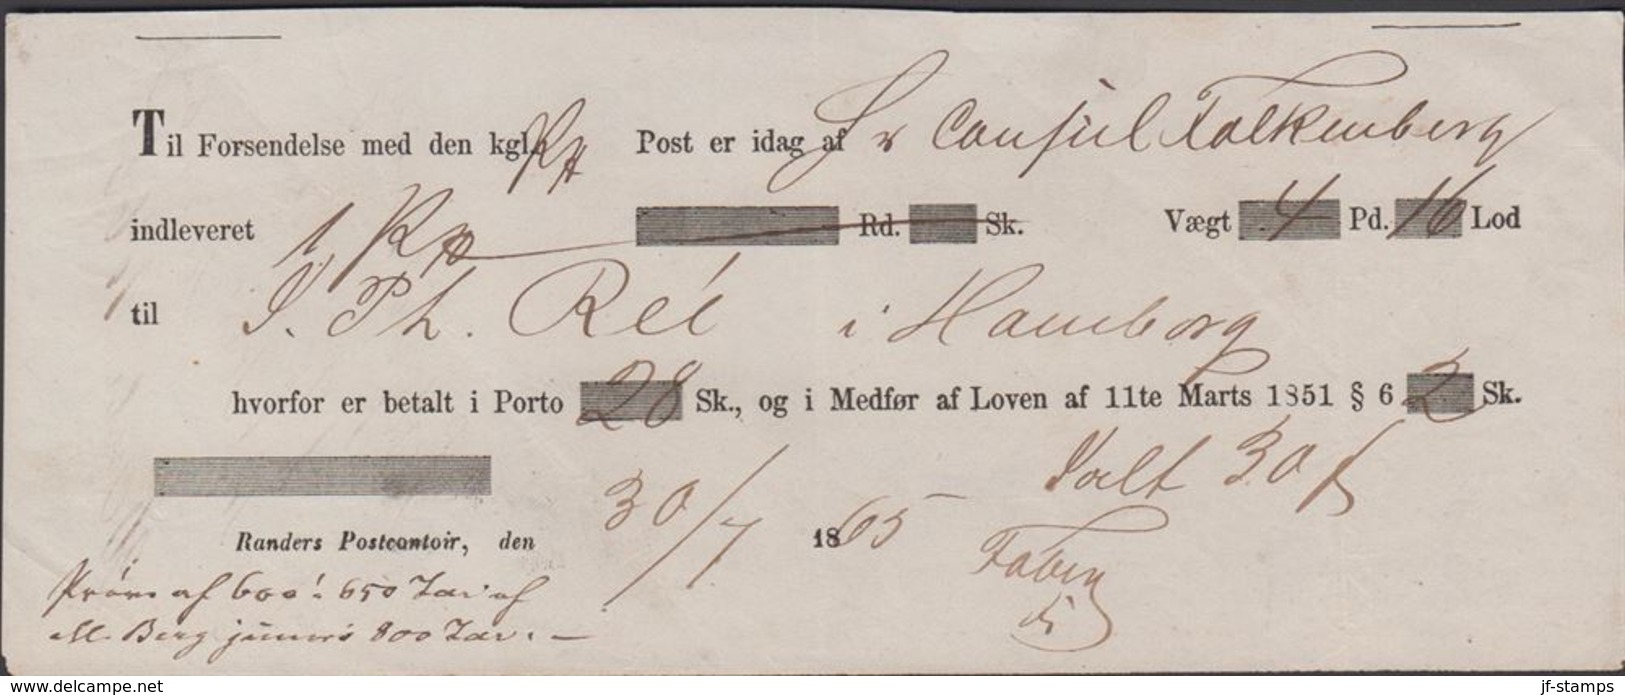 Til Forsendelse med den kgl. Post er idag af Hr Consul Falkenberg
indleveret 1 Rd. Sk. Vægt 4 Pd. 16 Lod
til J. Ph. Reé i Hamborg
hvorfor er betalt i Porto 28 Sk., og i Medfør af Loven af 11te Marts 1851 § 6 2 Sk.
Ialt 30 ſ
Randers Postcontoir, den 30/7 1865
Faber
af 600 650 af
M. Berg 800
www.delcampe.net
jf-stamps